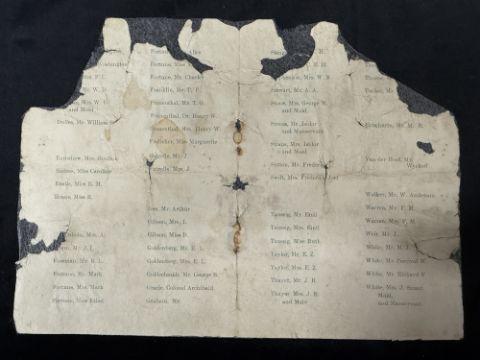 Fortune,
Fortune, Miss
Fortune, Mr. Charles
Franklin, Mr. T. P.
Frauenthal, Mr. T. G.
Frauenthal, Dr. Henry W.
Frauenthal, Mrs. Henry W.
Frolicher, Miss Marguerite
Futrelle, Mr. J.
Futrelle, Mrs. J.
Gee, Mr. Arthur
Gibson, Mrs. L.
Gibson, Miss D.
Goldenberg, Mr. E. L.
Goldenberg, Mrs. E. L.
Goldschmidt, Mr. George B.
Gracie, Colonel Archibald
Graham, Mr.
Washington
F. L.
W. D.
Mrs. W. D.
and Maid
Dulles, Mr. William
Earnshaw, Mrs. Boulton
Endres, Miss Caroline
Eustis, Miss E. M.
Evans, Miss E.
Mrs. A.
Mr. J. I.
Foreman, Mr. B. L.
Fortune, Mr. Mark
Fortune, Mrs. Mark
Fortune, Miss Ethel
M.
H. B.
Mrs. W. B.
Stewart, Mr. A. A.
Stone, Mrs. George N.
and Maid
Straus, Mr. Isidor
and Manservant
Straus, Mrs. Isidor
and Maid
Sutton, Mr. Frederick
Swift, Mrs. Frederick Joel
Taussig, Mr. Emil
Taussig, Mrs. Emil
Taussig, Miss Ruth
Taylor, Mr. E. Z.
Taylor, Mrs. E. Z.
Thayer, Mr. J. B.
Thayer, Mrs. J. B.
and Maid
Tucker, Mr.
Mr. M. R.
Van der Hoef, Mr.
Wyckoff
Walker, Mr. W. Anderson
Warren, Mr. F. M.
Warren, Mrs. F. M.
Weir, Mr. J.
White, Mr. M. J.
White, Mr. Percival W.
White, Mr. Richard F.
White, Mrs. J. Stuart
Maid,
and Manservant